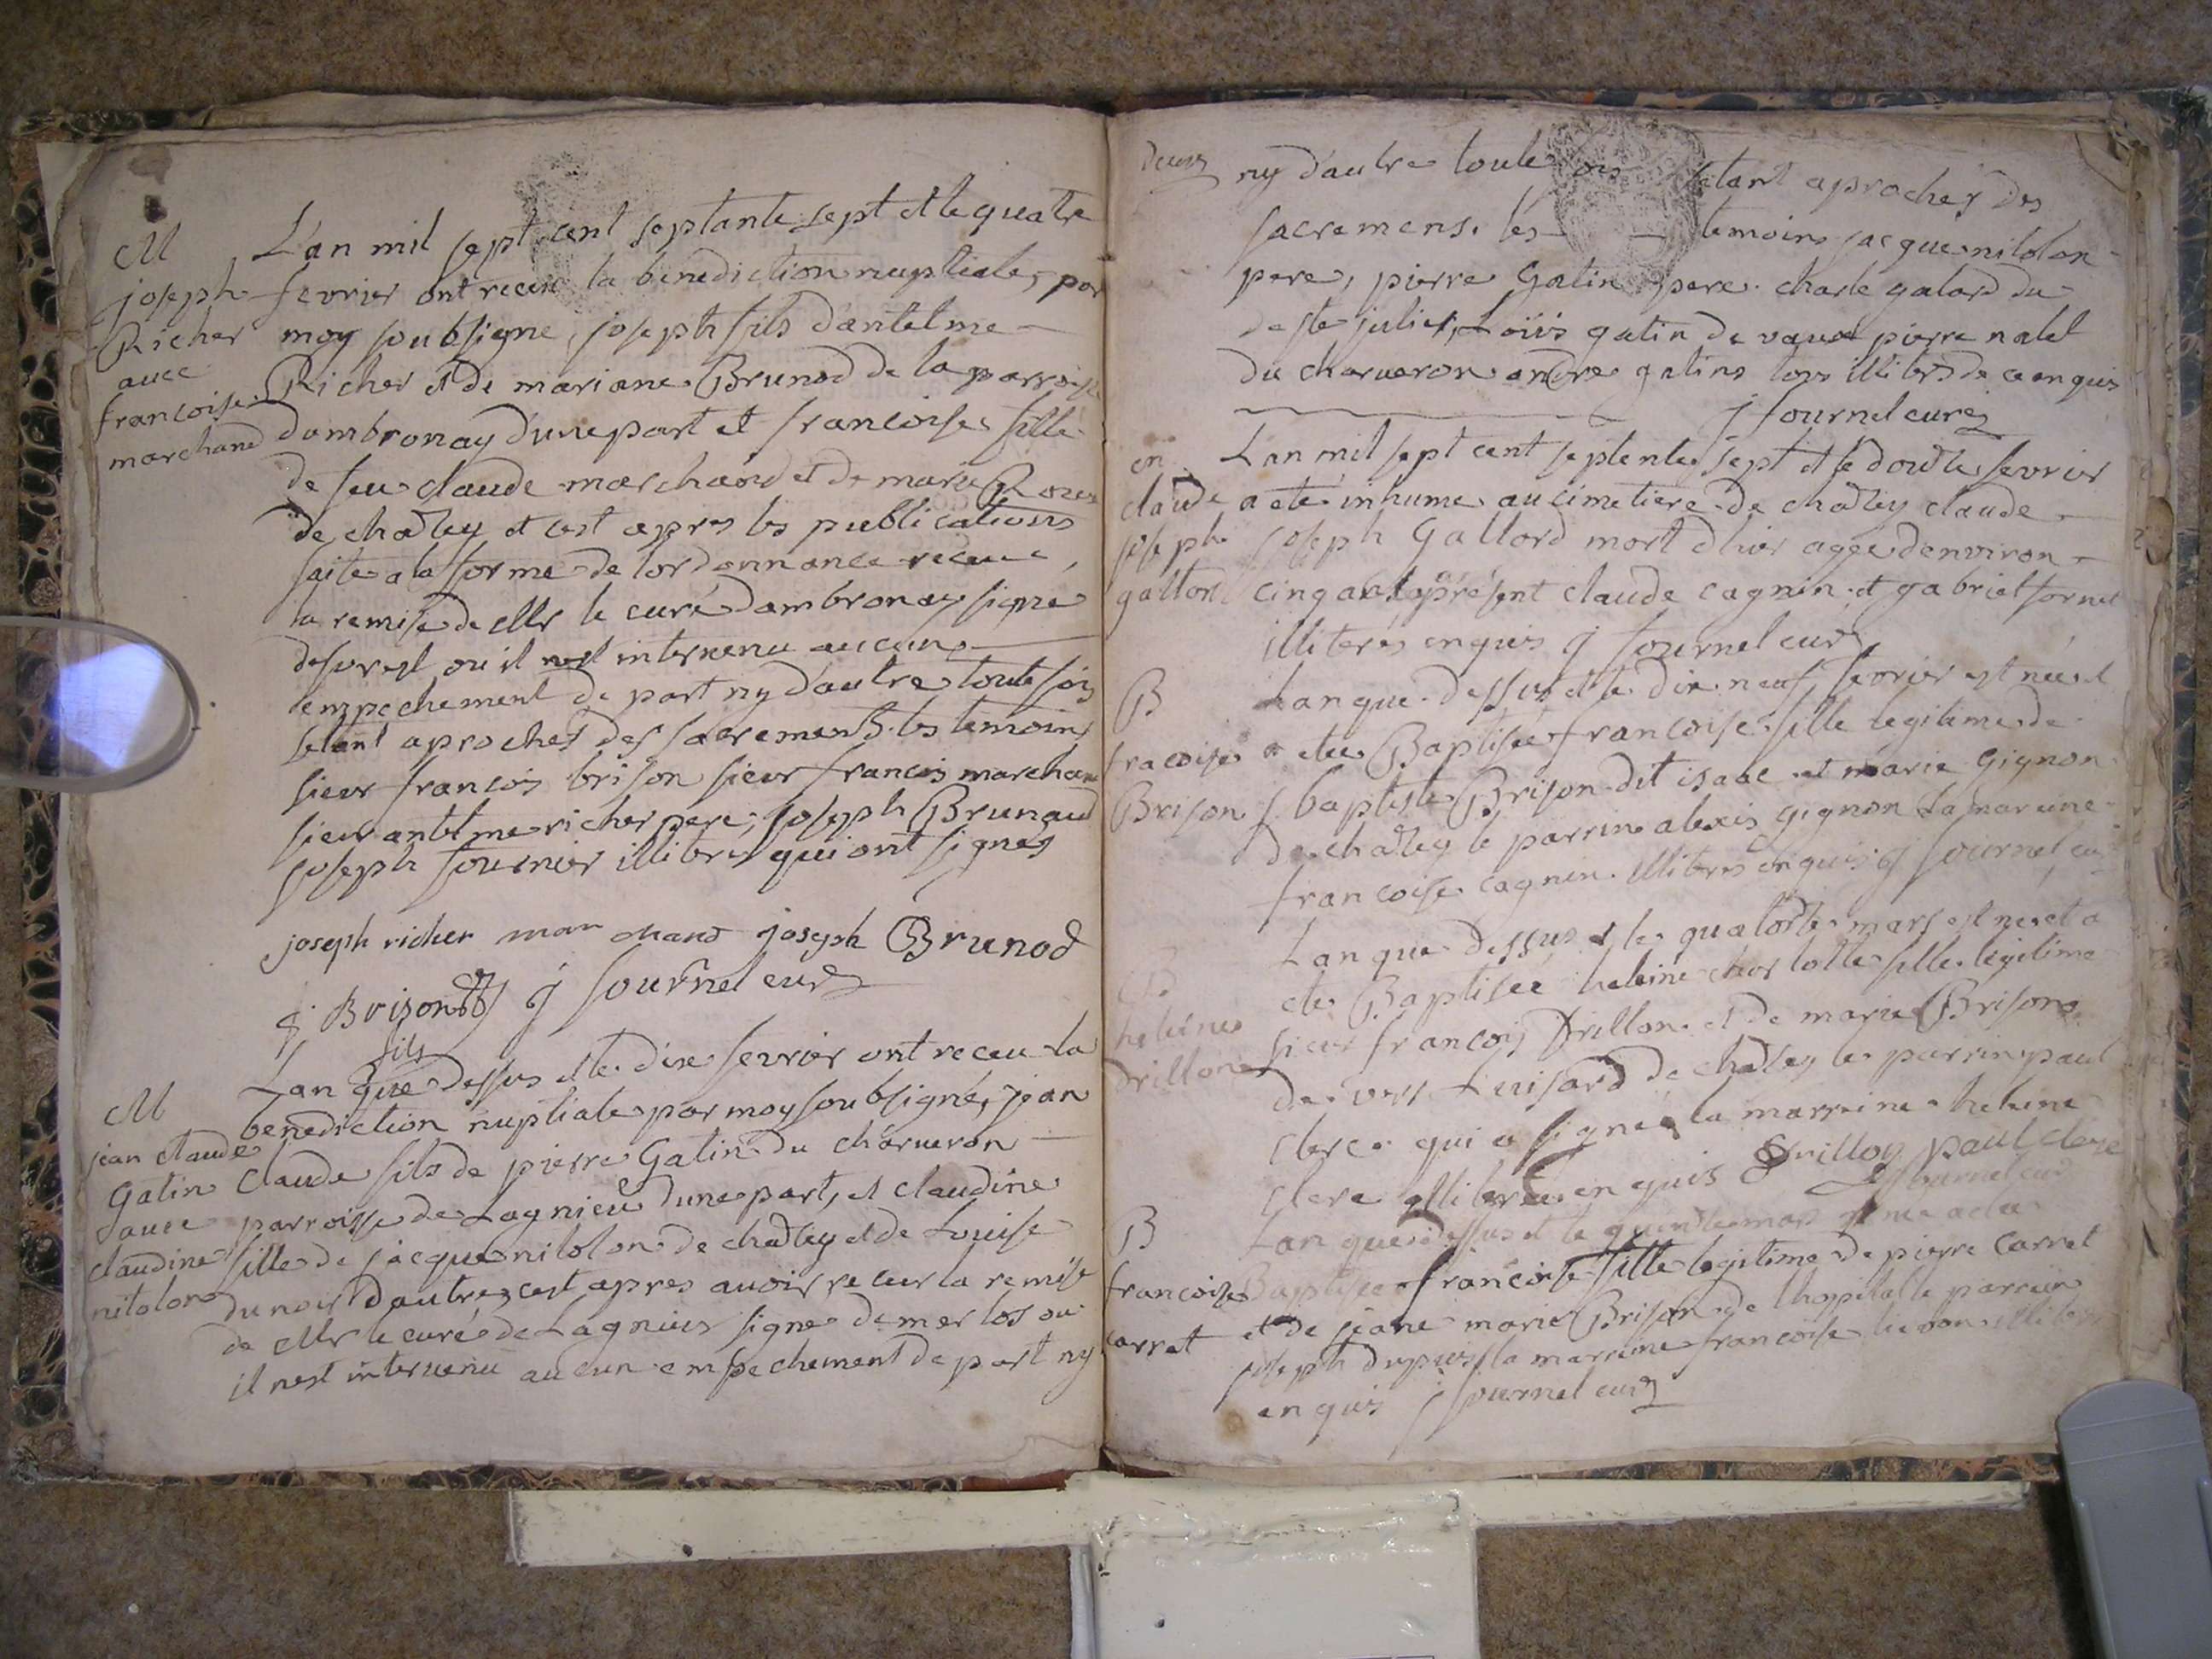 M
joseph
Richer
avec
francoise
marchand
L'an mil sept cent septante sept et le quatre
fevrier ont receu la benediction nuptiale, par
moy soubsigne, joseph fils d'antelme
Richer et de mariane Brunod de la parroisse
dambronay d'une part et francoise fille
de feu claude marchand et de marie
de chasley et cest apres les publications
faite a la forme de lordonnance receue
la remise de Mr le curé dambronay signe
ou il nest intervenu aucuns
empechement de part ny d'autre toutefois
setant aproches des sacrements. les temoins
sieur francois brison sieur francois marchand
sieur antelme richer pere, joseph Brunaud
joseph fournier illitres qui ont signes
joseph richer marchand joseph Brunod
j. Brison fils j fournel curé
M
jean claude
Gatin
avec
claudine
nitolon
Lan que dessus et le dix fevrier ont receu la
benediction nuptiale par moy soubsigné, jean
Claude fils de pierre Gatin du charveron
parroisse de Lagnieu dune part, et claudine
fille de jacque nitolon de chasley et de Louise
dunoir dautre, cest apres avoir receu la remise
de Mr le curé de Lagnieu signe demerlos ou
il nest intervenu aucun empechement de part ny
deux
ny d'autre toute ois setant aprochés des
sacremens. les temoins jacque nitolon
pere, pierre Gatin pere. charle galard du
de ste julie, Loüis gatin de vaux pierre nalet
du charveron andre gatins tous illitres de ce enquis
j fournel curé
en
claude
joseph
gallord
Lan mil sept cent septente sept et le douze fevrier
a eté inhume au cimetiere de chasley claude
joseph Gallord mort dhier agee denviron
cinq ans present claude cagnin et gabriel fornel
illiteres enquis j fournel curé
B
fracoise
Brison
Lan que dessus et le dix neuf fevrier est née et
a etee Baptisée francoise fille legitime de
j. baptiste Brison dit isaac et marie Gignon
de chasley le parrin alexis gignon La mareine
francoise cagnin. illitres enquis j fournel curé
B
heleine
drillon
Lan que dessus et le quatorze mars est née et a
ete Baptisée heleine charlotte fille legitime
sieur francois Drillon et de marie Brison
de vers Luisard de chasley le parrin paul
clerc qui a signé la marreine heleine
clerc illitrée enquis Drillon paul clerc
j fournel curé
B
francoise
carret
Lan que dessus et le quinze mars est née a ete
Baptisée francoise fille legitime de pierre carret
et de jeane marie Brison de lhopital le parrein
joseph dupuis la marreine francoise illitres
enquis j fournel curé